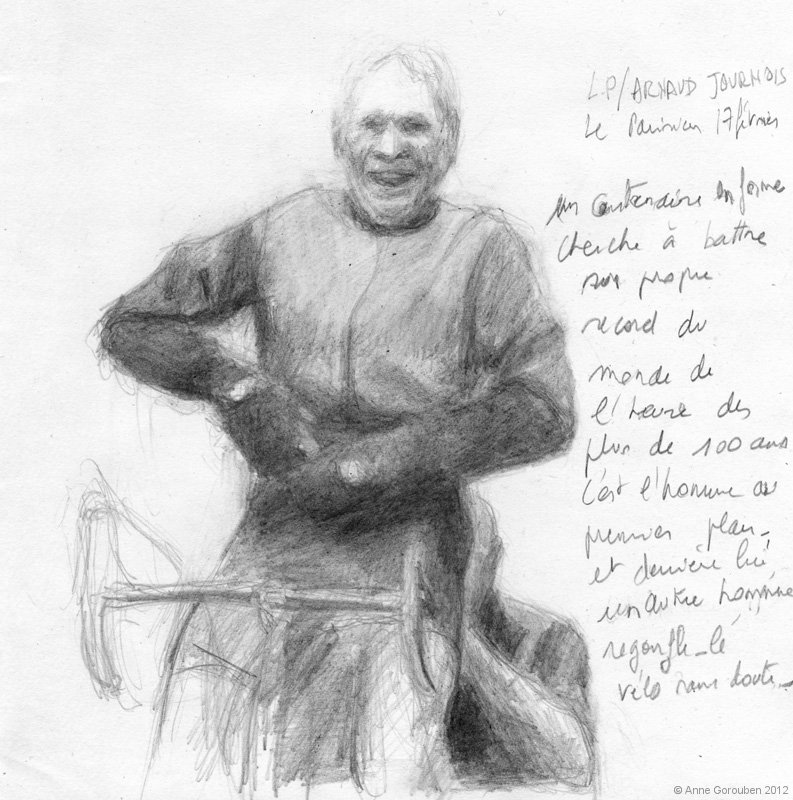 L.P/ARNAUD JOURNOIS
Le Parisien 17 février
un centenaire en forme
cherche à battre
son propre
record du
monde de
l'heure des
plus de 100 ans
c'est l'homme au
premier plan_
et derrière lui,
un autre homme
regonfle_le
vélo sans doute_
© Anne Gorouben 2012